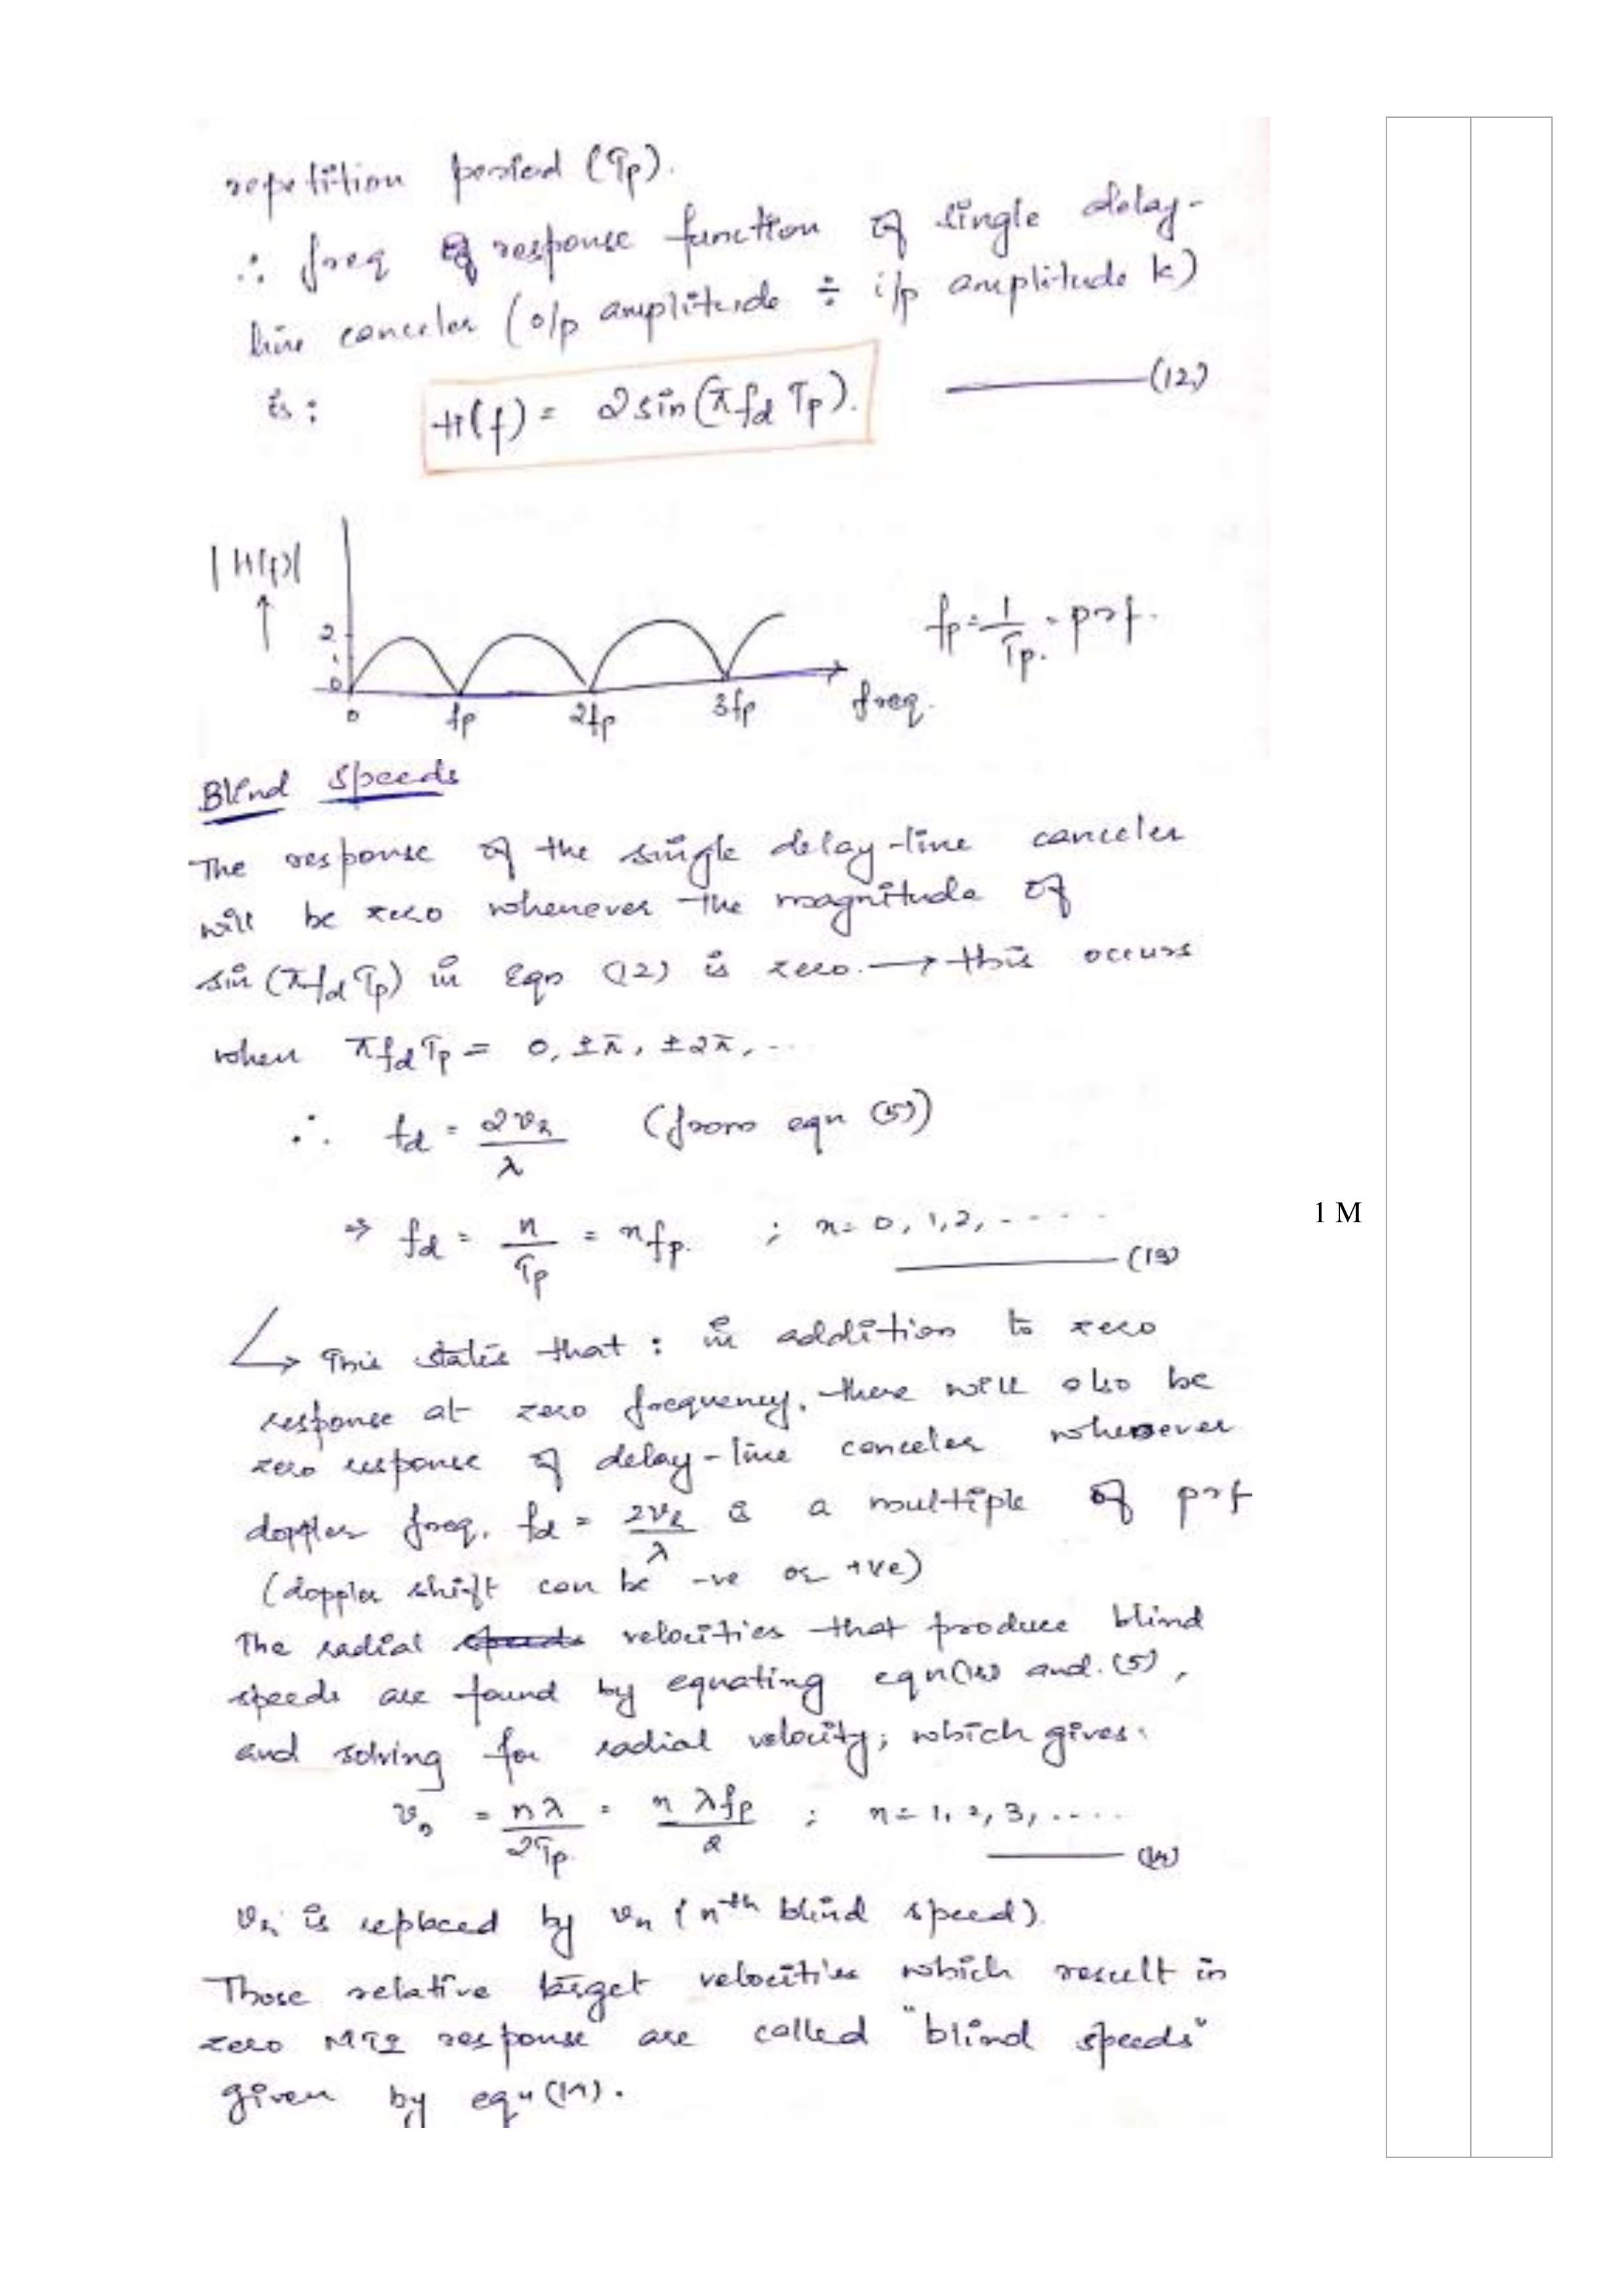 repetition period (Tp).
∴ freq response function of single delay-
line canceler (o/p amplitude ÷ i/p amplitude k)
is : H(f) = 2 sin(π fd Tp). ——— (12)
|H(f)|
↑
2
1
0
0 fp 2fp 3fp freq.
fp = 1/Tp = prf.
Blind Speeds
The response of the single delay-line canceler
will be zero whenever the magnitude of
sin (π fd Tp) in Eqn (12) is zero. → this occurs
when π fd Tp = 0, ±π, ±2π, ...
∴ fd = 2vr/λ (from eqn (5))
⇒ fd = n/Tp = nfp. ; n = 0, 1, 2, ..... ——— (13)
1 M
↳ This states that : in addition to zero
response at zero frequency, there will also be
zero response of delay-line canceler whenever
doppler freq. fd = 2vr/λ is a multiple of prf
(doppler shift can be -ve or +ve)
The radial velocities that produce blind
speeds are found by equating eqn(13) and (5),
and solving for radial velocity; which gives:
vn = nλ/2Tp = nλfp/2 ; n = 1, 2, 3, .... ——— (14)
vr is replaced by vn (nth blind speed).
Those relative target velocities which result in
zero MTI response are called "blind speeds"
given by eqn (14).